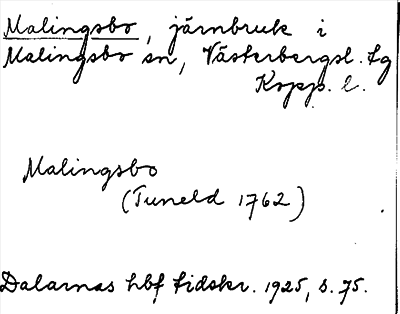 Malingsbo, järnbruk i
Malingsbo sn, Västerbergsl. fg
Kopp. l.
Malingsbo
(Tuneld 1762)
Dalarnas hbf tidskr. 1925, s. 75.